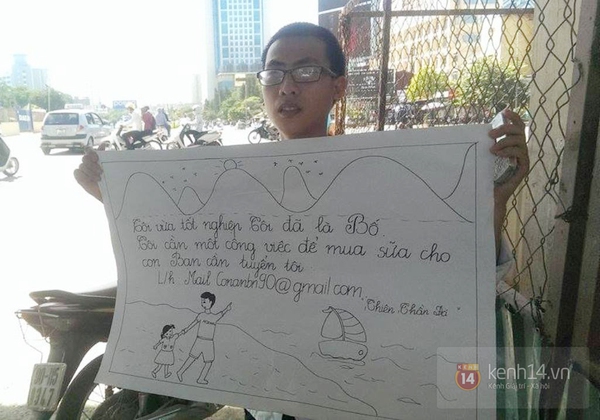 Tôi vừa tốt nghiệp Tôi đã là Bố
Tôi cần một công việc để mua sữa cho
con Bạn cần tuyển tôi
L/h Mail Conantn90@gmail.com
KÊNH
14
kenh14.vn
Kênh Giải trí - Xã hội